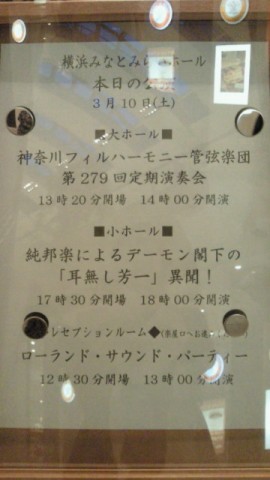 横浜みなとみらいホール
本日の公演
3月10日(土)
■大ホール■
神奈川フィルハーモニー管弦楽団
第279回定期演奏会
13時20分開場 14時00分開演
■小ホール■
純邦楽によるデーモン閣下の
「耳無し芳一」異聞！
17時30分開場 18時00分開演
レセプションルーム◆(楽屋口へお進
ローランド・サウンド・パーティー
12時30分開場 13時00分開演